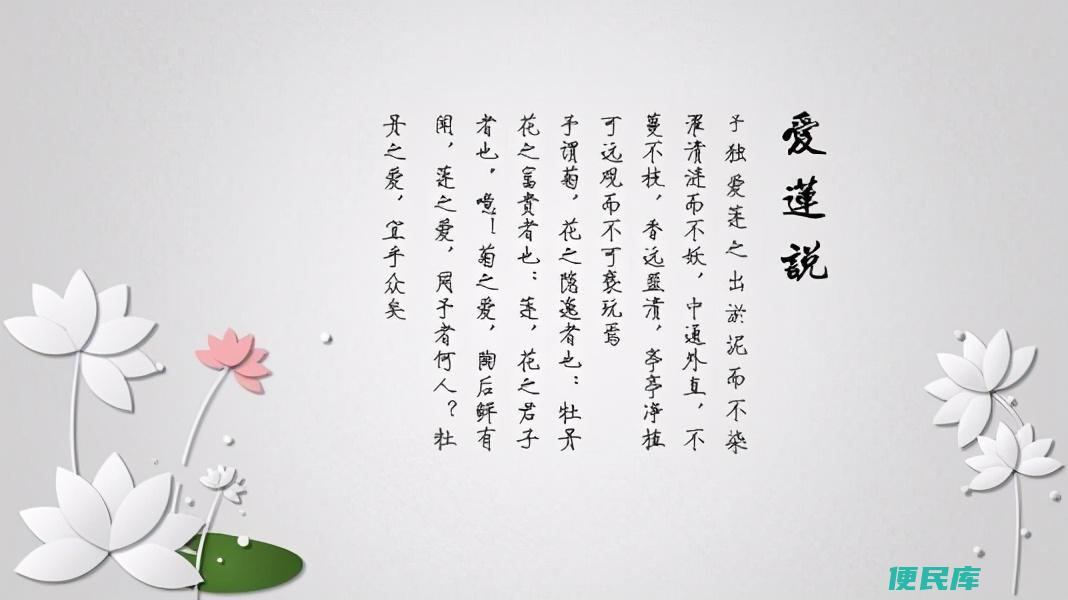 愛蓮説
予独爱莲之出淤泥而不染
濯清涟而不妖，中通外直，不
蔓不枝，香远益清，亭亭净植
可远观而不可亵玩焉
予谓菊，花之隐逸者也：牡丹
花之富貴者也：莲，花之君子
者也，噫！菊之爱，陶后鲜有
闻，莲之爱，同予者何人？牡
丹之爱，宜乎众矣
便民库